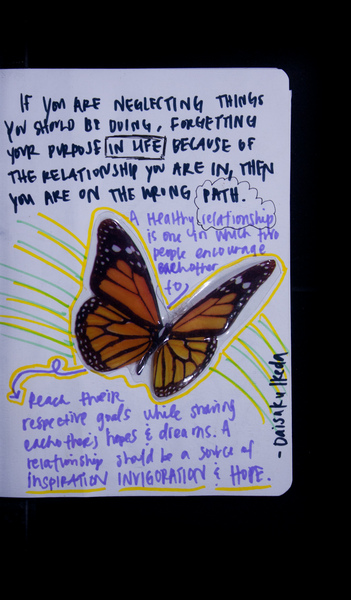 IF YOU ARE NEGLECTING THINGS
YOU SHOULD BE DOING, FORGETTING
YOUR PURPOSE IN LIFE BECAUSE OF
THE RELATIONSHIP YOU ARE IN, THEN
YOU ARE ON THE WRONG PATH.
A Healthy relationship
is one in which two
people encourage
each other
to
Reach their
respective goals while sharing
each other's hopes & dreams. A
relationship should be a source of
INSPIRATION INVIGORATION & HOPE.
- Daisaku Ikeda